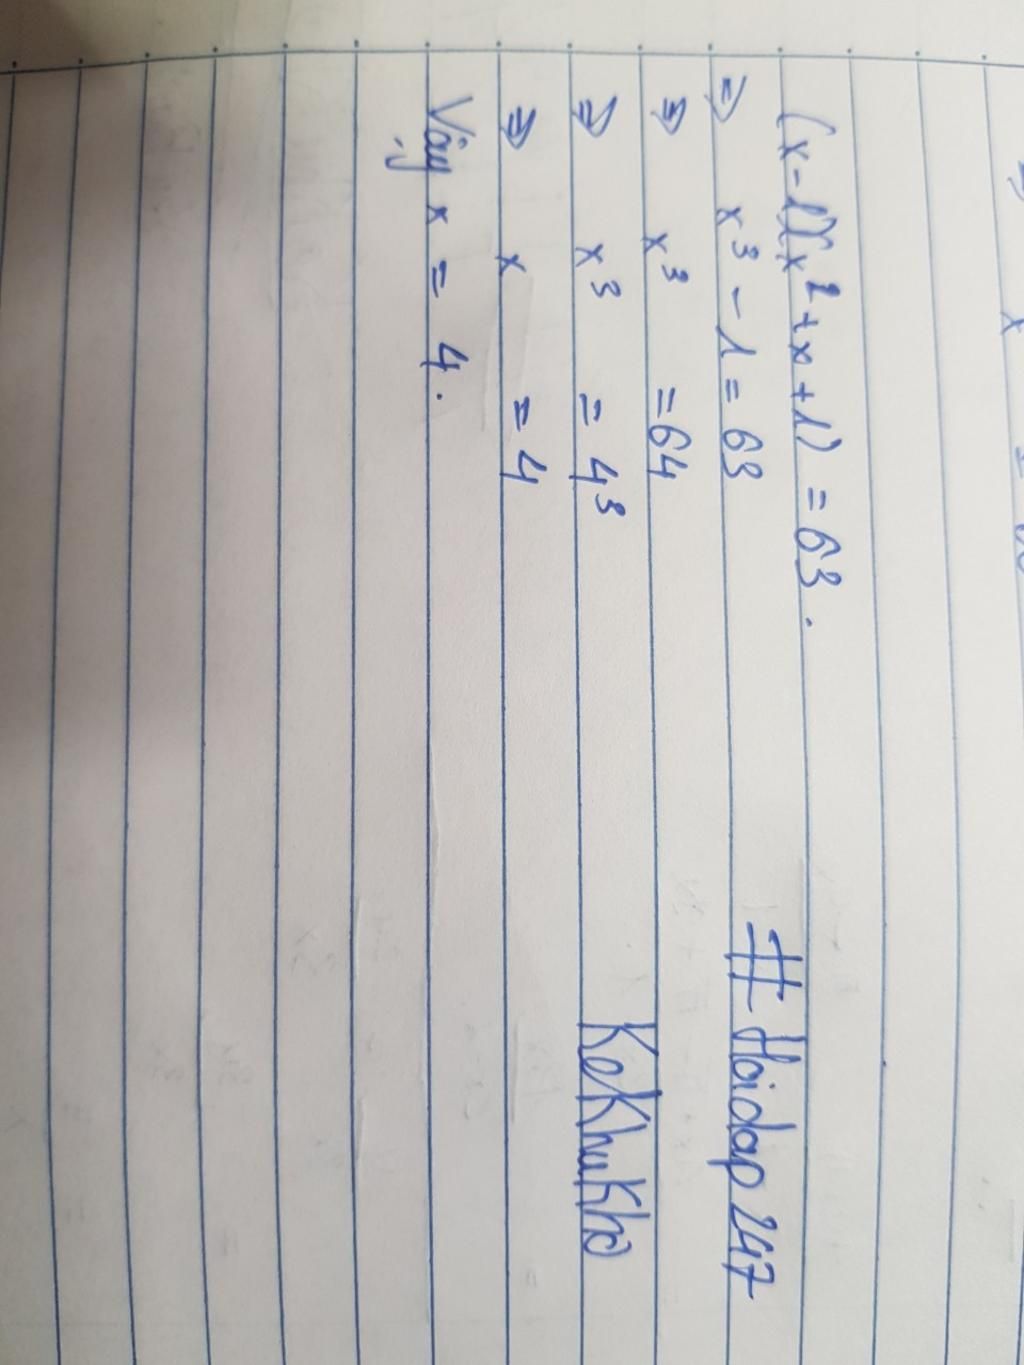 (x-1)(x²+x+1) = 63.
⇒ x³ - 1 = 63
⇒ x³ = 64
⇒ x³ = 4³
⇒ x = 4
Vậy x = 4.
# Hoidap 247
KeKhuKho